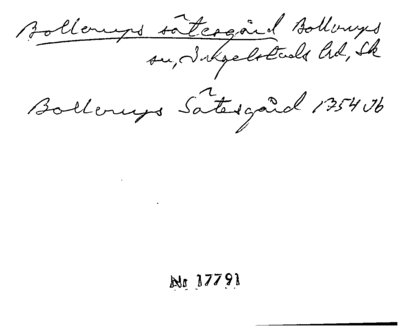 Bollerups sâtesgård Bollerups
sn, Ingelstads hd, Sk
Bollerups Sâtesgård 1754 Jb
No 17791